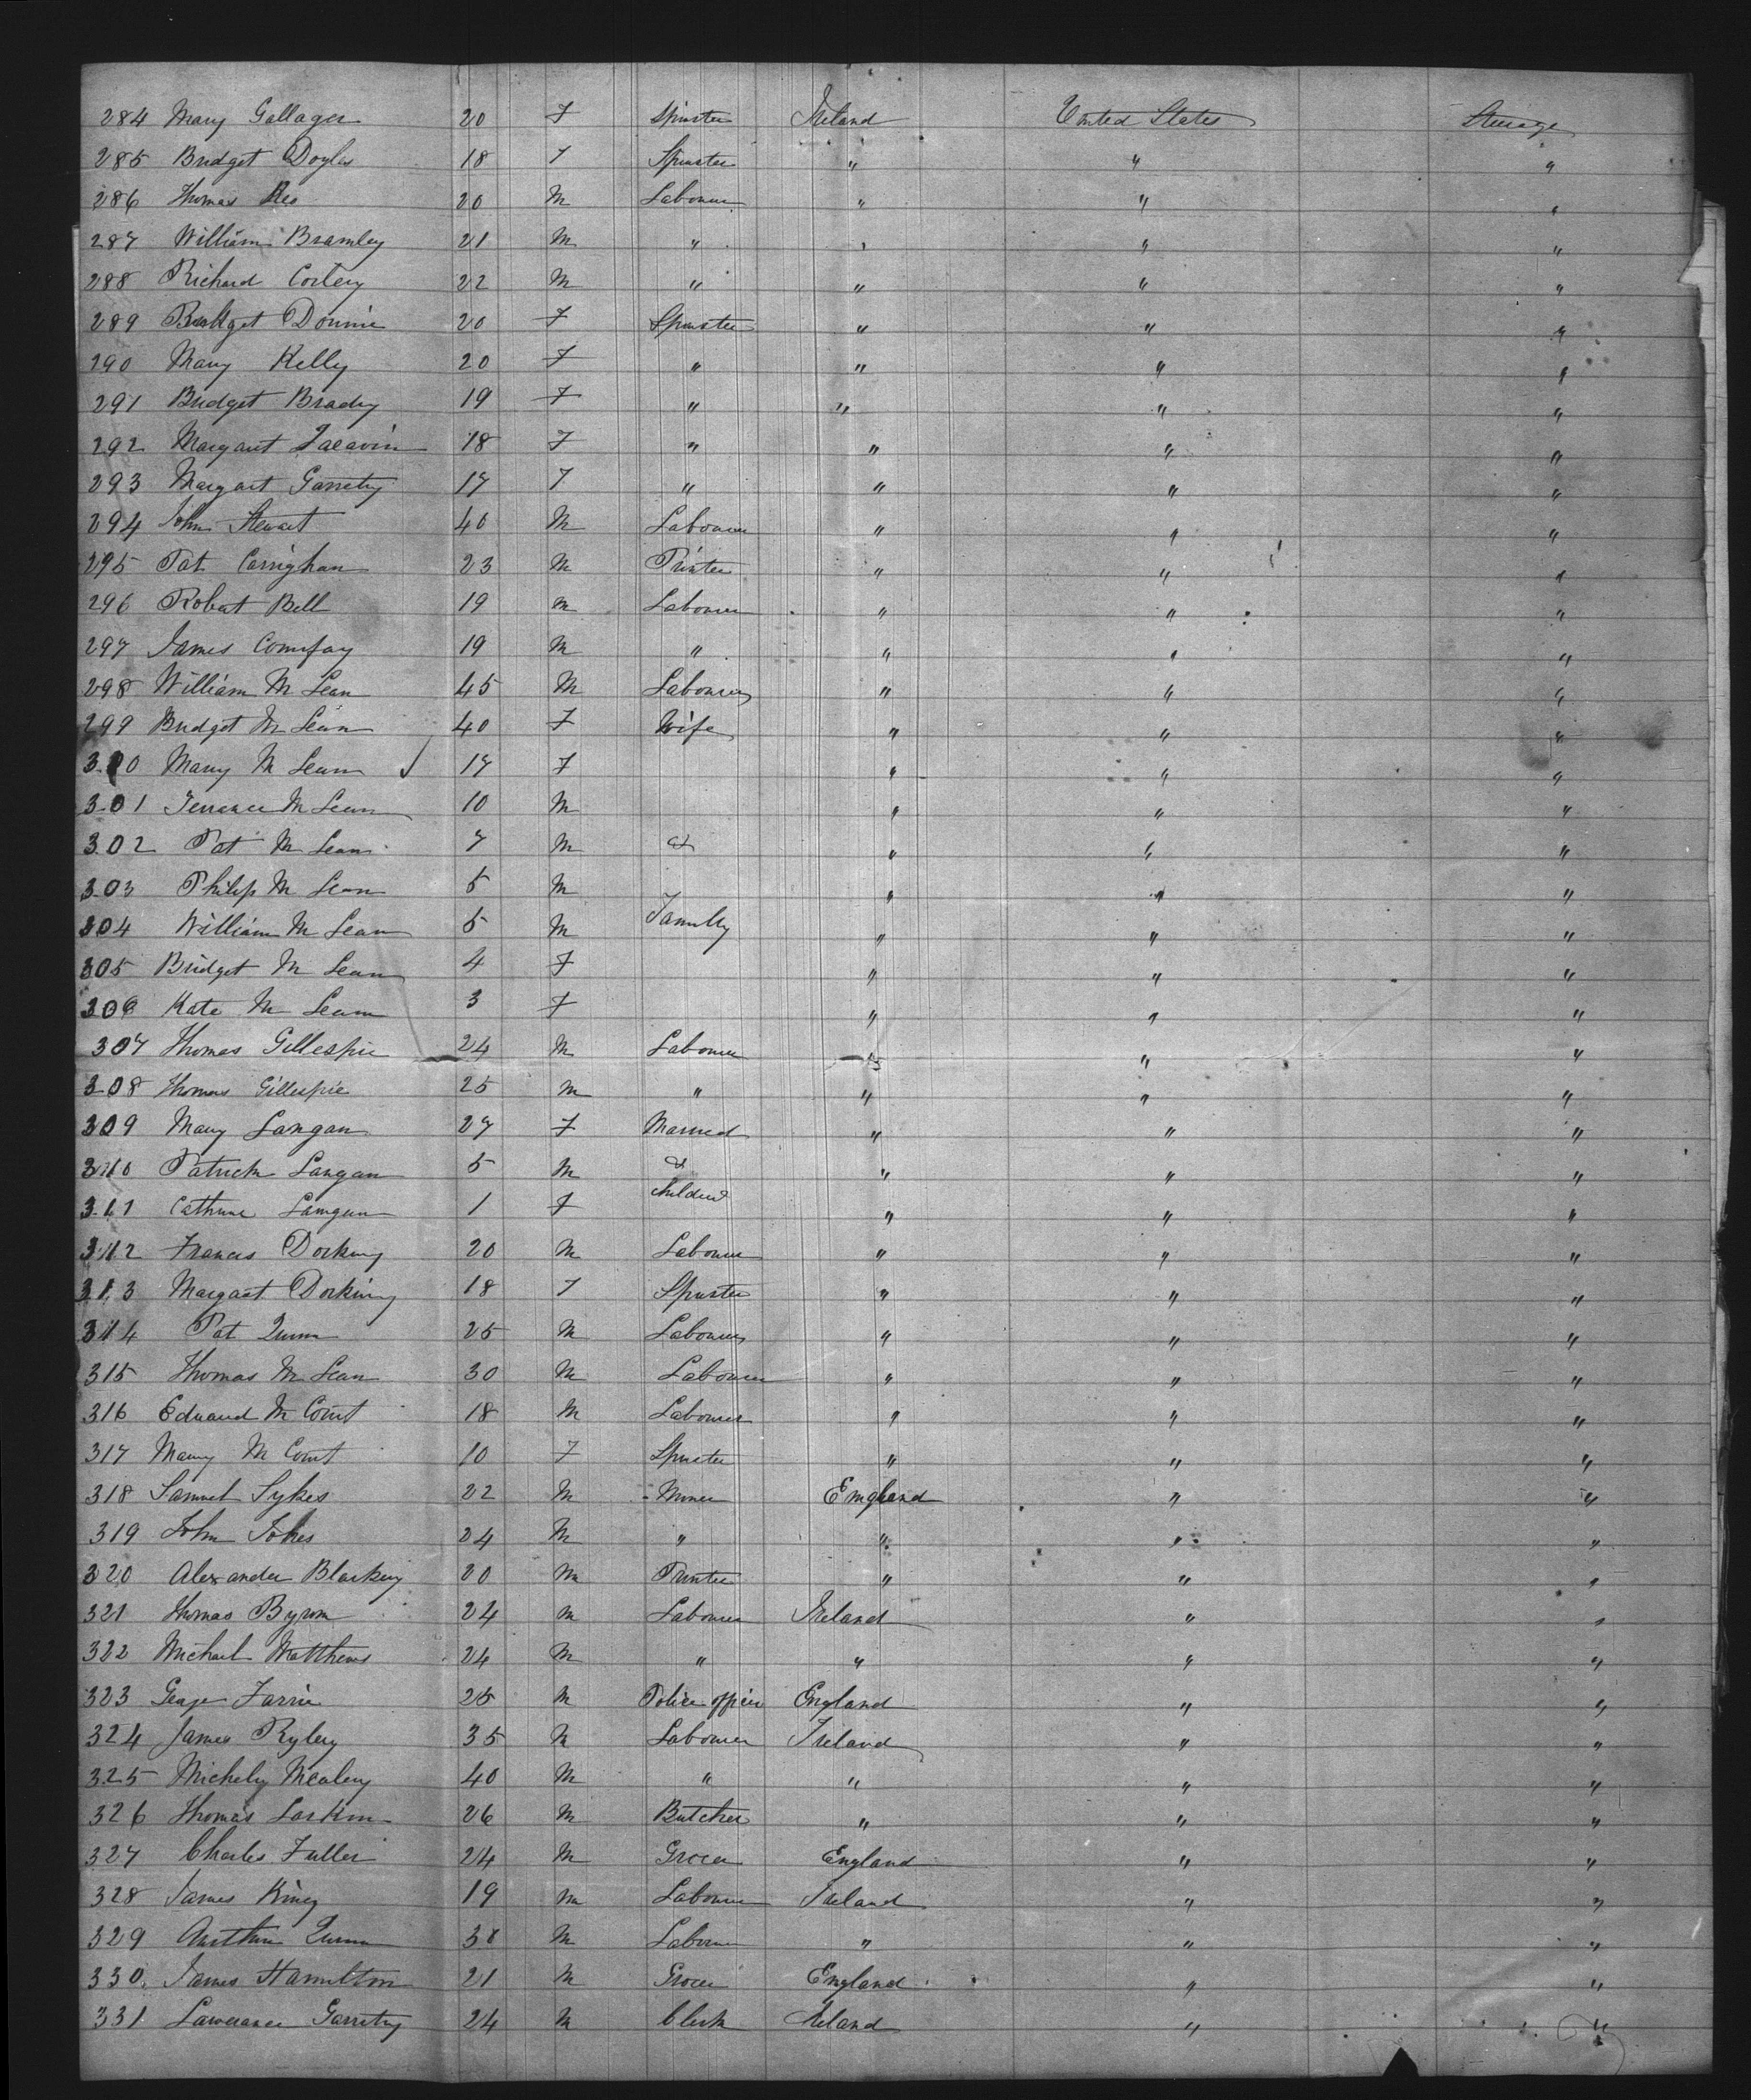 284 Mary Gallager 20 F Spinster Ireland United States Steerage
285 Bridget Doyle 18 F Spinster " " "
286 Thomas 20 M Labourer " " "
287 William Bramley 21 M " " " "
288 Richard Corley 22 M " " " "
289 Bridget 20 F Spinster " " "
290 Mary Kelly 20 F " " " "
291 Bridget Brady 19 F " " " "
292 Margaret 18 F " " " "
293 Margaret Garrety 17 F " " " "
294 John Stewart 40 M Labourer " " "
295 Pat Carrighan 23 M Printer " " "
296 Robert Bell 19 M Labourer " " "
297 James 19 M " " " "
298 William M Lean 45 M Labourer " " "
299 Bridget M Lean 40 F Wife " " "
300 Mary M Lean 17 F " " "
301 Terrance M Lean 10 M " " "
302 Pat M Lean 7 M & " " "
303 Philip M Lean 5 M " " "
304 William M Lean 5 M Family " " "
305 Bridget M Lean 4 F " " "
306 Kate M Lean 3 F " " "
307 Thomas Gillespie 24 M Labourer " " "
308 Thomas Gillespie 25 M " " " "
309 Mary Langan 27 F Married " " "
310 Patrick Langan 5 M & " " "
311 Cathrine Langan 1 F children " " "
312 Francis Dorking 20 M Labourer " " "
313 Margaret Dorking 18 F Spinster " " "
314 Pat Quinn 25 M Labourer " " "
315 Thomas M Lean 30 M Labourer " " "
316 Edward M Court 18 M Labourer " " "
317 Mary M Court 10 F Spinster " " "
318 Samuel Sykes 22 M Miner England " "
319 John 24 M " " " "
320 Alexander 20 M Printer " " "
321 Thomas Byrom 24 M Labourer Ireland " "
322 Michael Matthews 24 M " " " "
323 George Farrie 25 M Police officer England " "
324 James Ryley 35 M Labourer Ireland " "
325 40 M " " " "
326 Thomas Larkin 26 M Butcher " " "
327 Charles Fuller 24 M Grocer England " "
328 James King 19 M Labourer Ireland " "
329 Arthur Quinn 38 M Labourer " " "
330 James Hamilton 21 M Grocer England " "
331 Lawerance Garrety 24 M Clerk Ireland " "